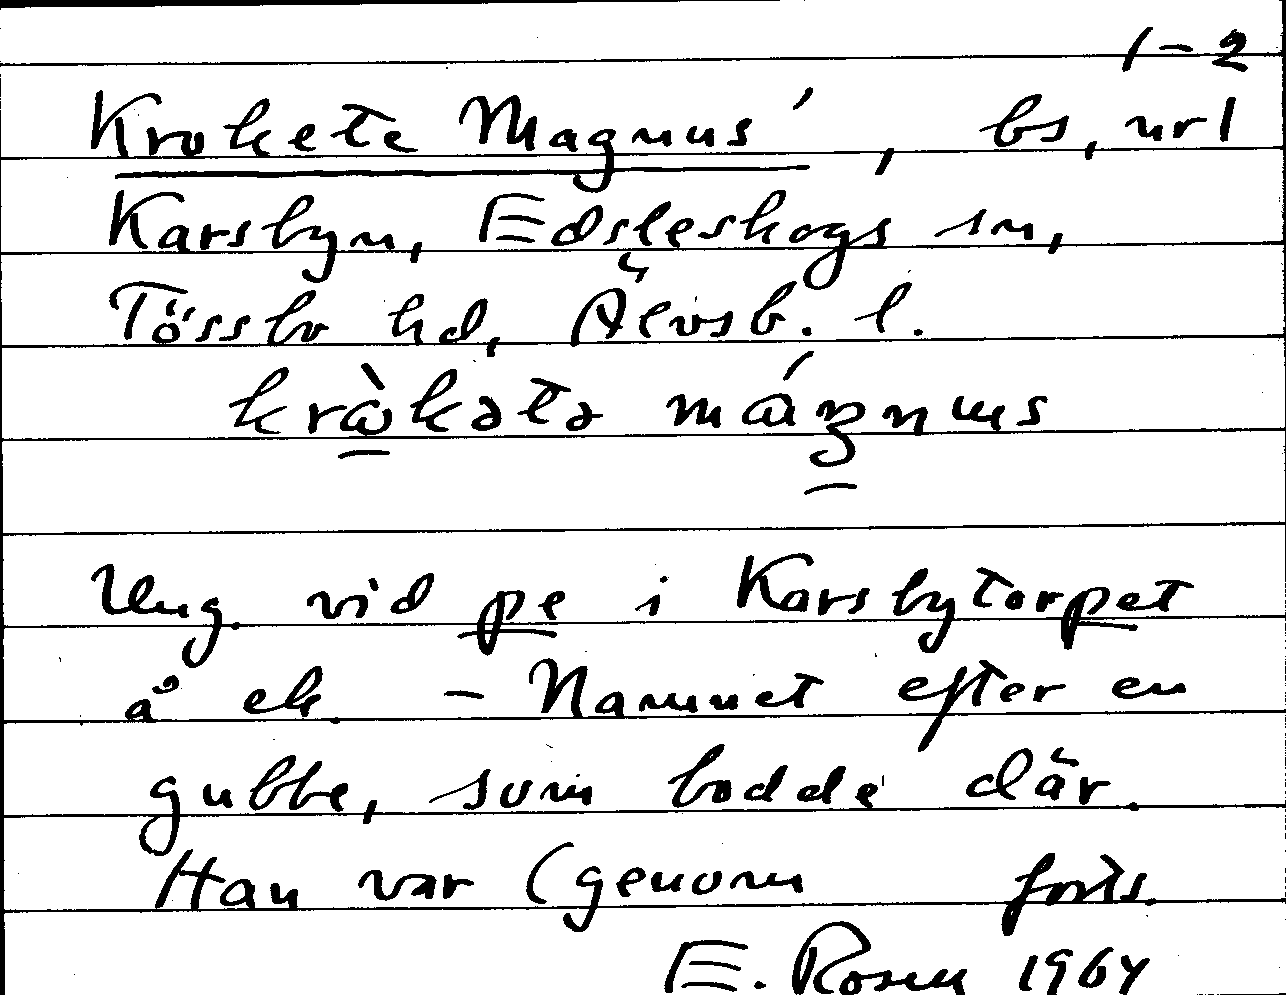 1-2
Krokete Magnus', bs, url
Karsbyn, Edsleskogs sn,
Tössbo hd, Älvsb. l.
kràkətə mágnus
Ung. vid pe i Karsbytorpet
å ek. – Namnet efter en
gubbe, som bodde där.
Han var (genom forts.
E. Rosen 1964